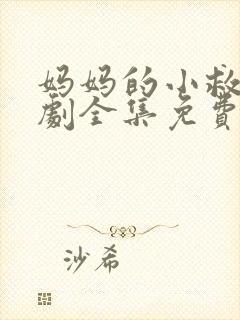 妈妈的小救
劇全集免費
沙希